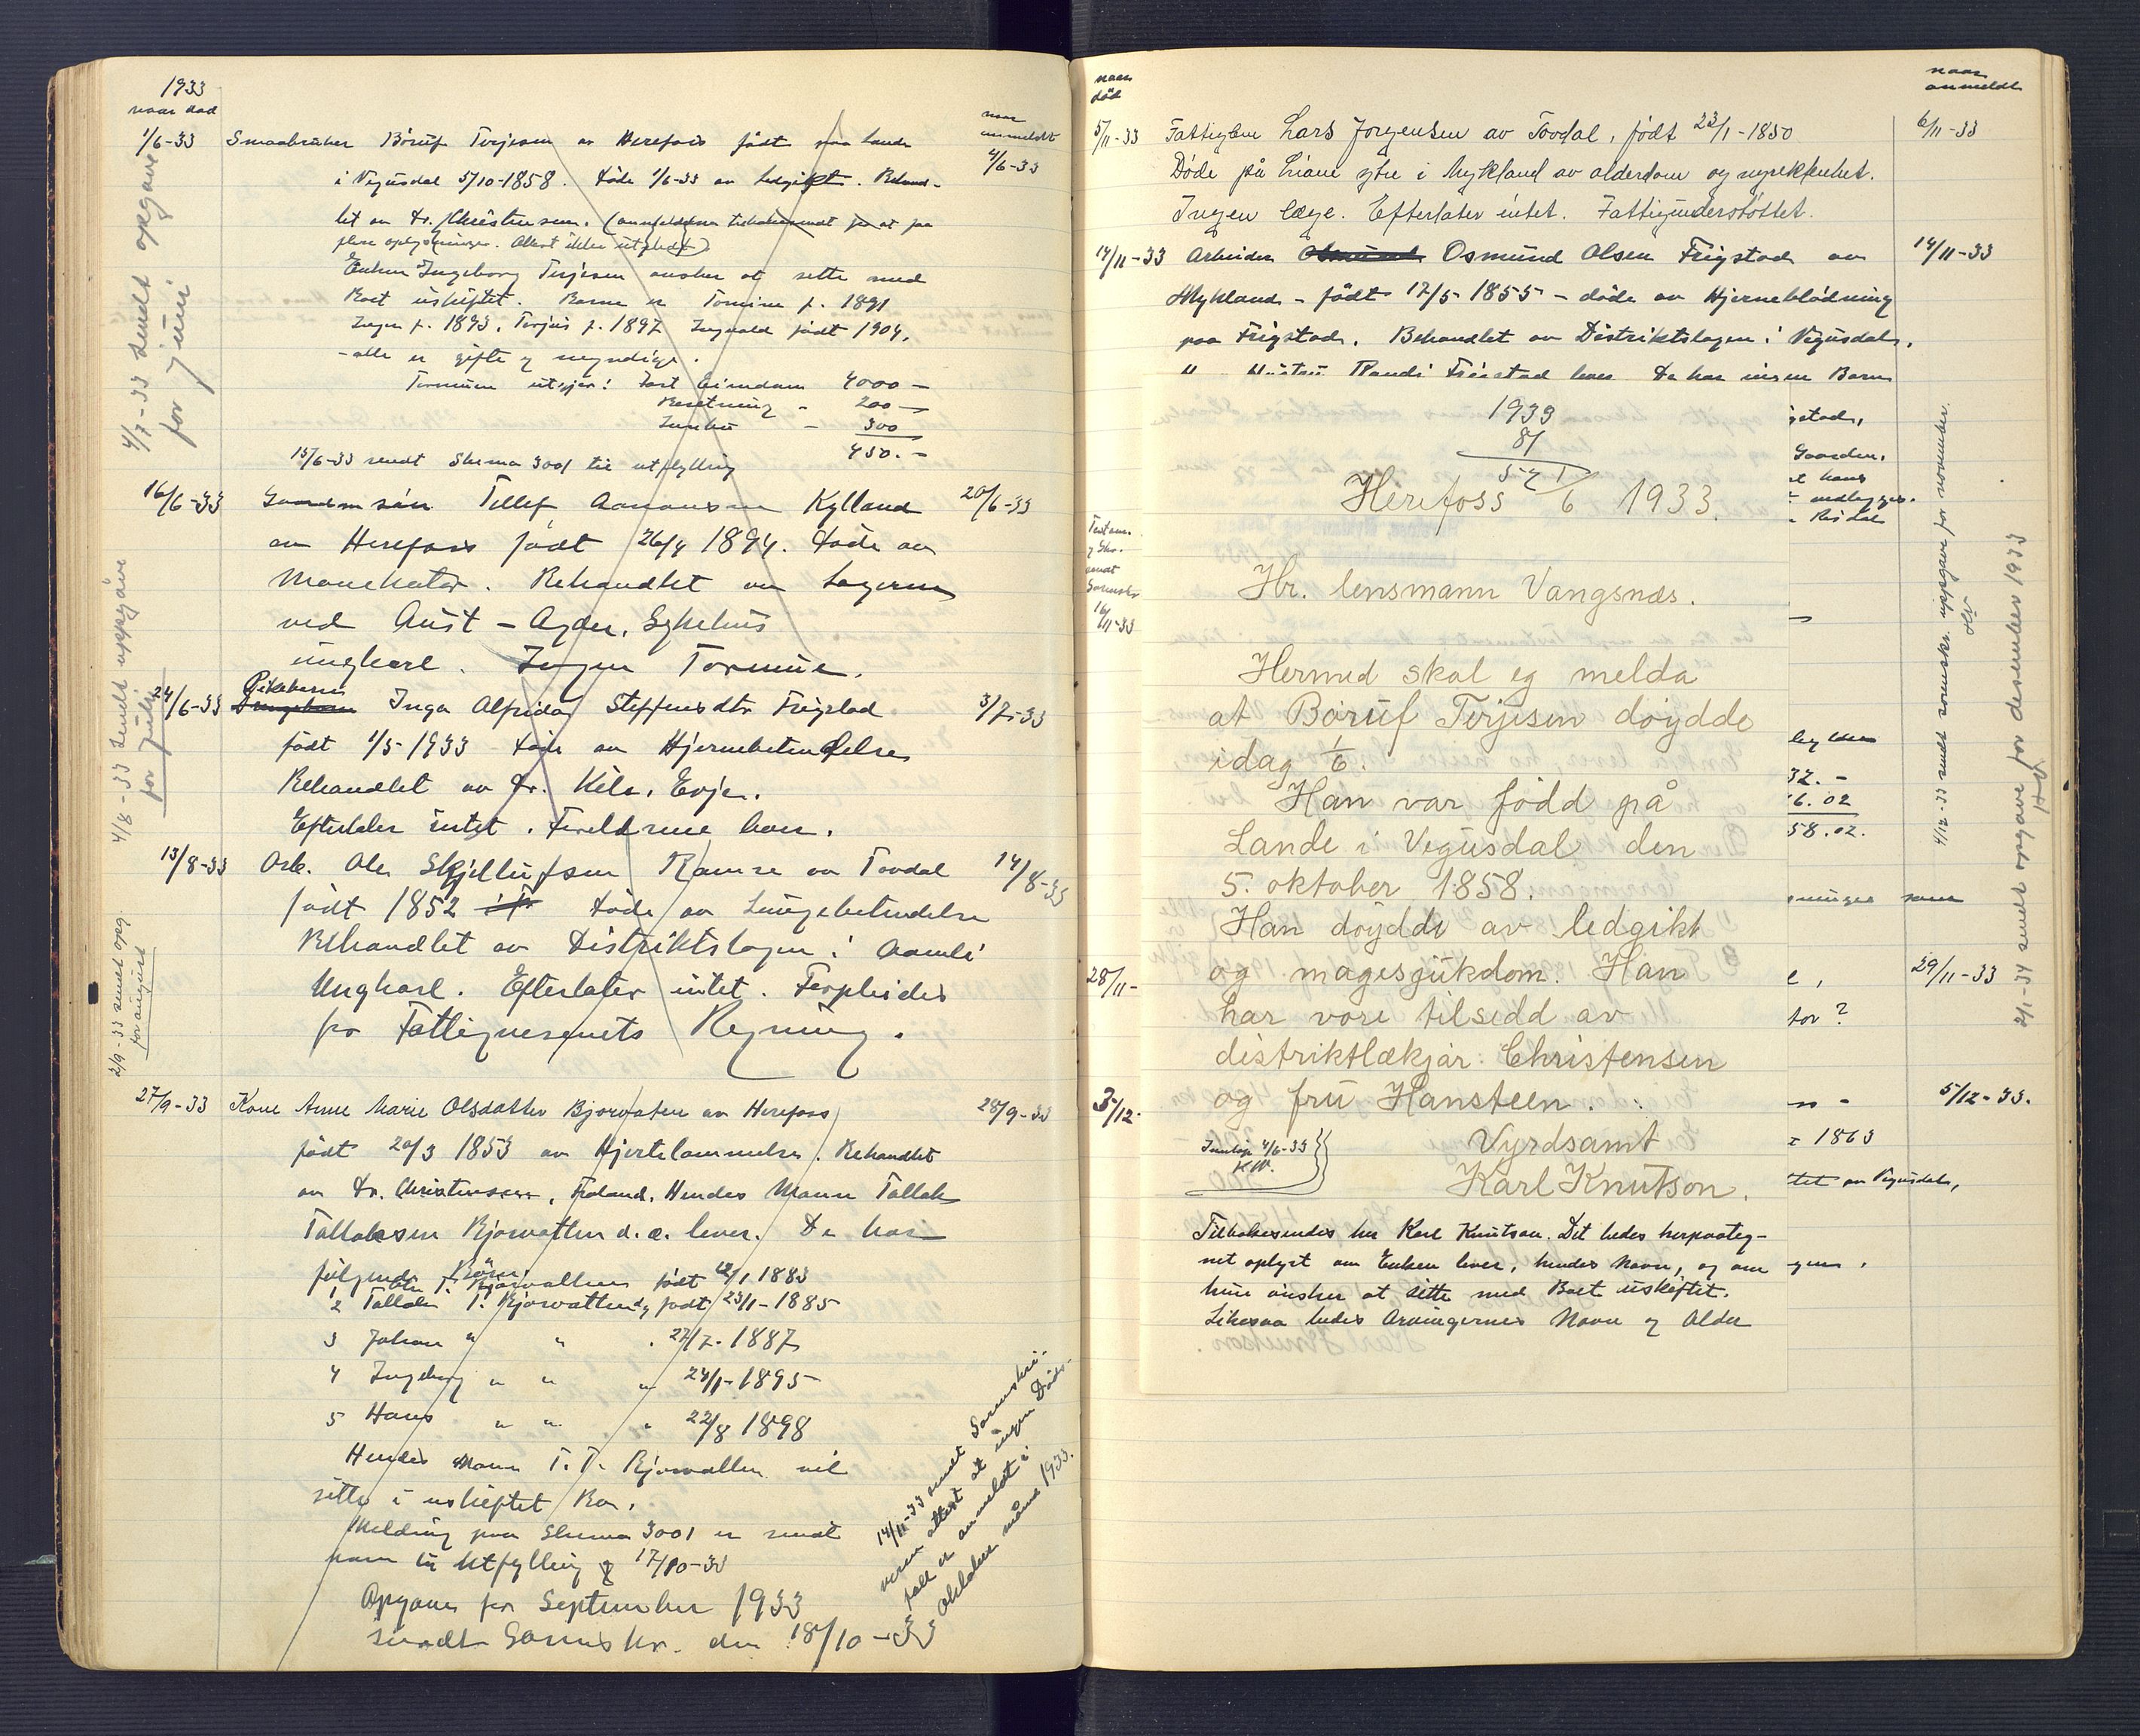 1933
naar død
naar
anmeldt
1/6-33 Smaabruker Børuf Terjesen av Herefoss født paa Lande 4/6-33
i Vegusdal 5/10-1858. Døde 1/6-33 av Ledgikt. Behand-
let av Dr. Christensen. (anmeldelsen tilbakesendt for at faa
flere oplysninger. Attest ikke utstedt)
Enken Ingeborg Terjesen ønsker at sitte med
Boet uskiftet. Barna er Tomine f. 1891
f. 1893, Terjus f. 1897 Ingvald født 1904,
- alle er gifte og myndige.
Formuen utgjør: Fast Eiendom 4000 -
Besetning - 200 -
Innbo - 300
450. -
15/6-33 sendt Skema 3001 til utfylling
4/7-33 sendt opgave
for juni
16/6-33 Gaardm. søn Tellef Aanonsen Kylland 20/6-33
av Herefoss født 26/4 1894. Døde av
Behandlet av Lægerne
ved Aust-Agder Sykehus
ungkarl. Ingen Formue.
Pikebarn
24/6-33 Inga Alfrida Steffensdtr Frigstad 3/7-33
født 1/5-1933 Døde av Hjernebetendelse
Behandlet av Dr. Kile, Evje.
Efterlater intet. Foreldrene lever.
4/8-33 sendt oppgave
for juli
13/8-33 Arb. Ole Skjellufsen Ramse av Tovdal 14/8-33
født 1852 Døde av Lungebetendelse
Behandlet av Distriktslægen i Aamli
Ungkarl. Efterlater intet. Forpleides
for Fattigvesenets Regning.
2/9-33 sendt opg.
for august
27/9-33 Kone Anne Marie Olsdatter Bjorvaten av Herefoss 28/9-33
født 20/3 1853 av Hjertelammelse. Behandlet
av Dr. Christensen, Froland. Hendes Mann Tallak
Tallaksen Bjorvatten d.e. lever. De har
følgende Børn
Ole T. Bjorvatten født 12/1 1883
2 Tallak T. Bjorvatten dy født 23/1-1885
3 Johan " " . 27/7-1887
4 Ingeborg " " " 24/1-1895
5 Hans " " " 22/8 1898
Hendes Mann T. T. Bjorvatten vil
sitte i uskiftet Bo.
Melding paa Skema 3001 er sendt
ham til Utfylling 17/10-33
Opgave for September 1933
sendt Sorenskr. den 18/10-33
14/11-33 sendt Sorenskri-
veren attest at ingen Døds-
fall er anmeldt i
oktober måned 1933.
naar
død
naar
anmeldt
5/11-33 Fattiglem Lars Jorgensen av Tovdal, født 23/1-1850 6/11-33
Døde på Liane ytre i Mykland av alderdom og svrekkenhet.
Ingen læge. Efterlater intet. Fattigunderstøttet.
14/11-33 Arbeider Osmund Olsen Frigstad av 14/11-33
Mykland - født 17/5 1855 - døde av Hjerneblødning
paa Frigstad. Behandlet av Distriktslægen i Vegusdal.
" Hustru Randi Frigstad lever De har ingen Barn
1933
81
541
Herefoss 1/6 1933.
Hr. lensmann Vangsnæs.
Hermed skal eg melda
at Børuf Terjesen døydde
idag 1/6.
Han var fødd på
Lande i Vegusdal den
5. oktober 1858.
Han døydde av ledgikt
og magesjukdom. Han
har vore tilsedd av
distriktlækjar Christensen
og fru Hansteen.
Vyrdsamt
Karl Knutson.
Innløp 4/6-33
Tilbakesendes hr Karl Knutson. Det bedes herpaateg-
net oplyst om Enken lever, hendes Navn, og om
hun ønsker at sitte med Boet uskiftet.
Likesaa bedes Arvingernes Navn og Alder
Testam.
sendt
Sorenskr
16/11-33
gstad,
Gaarden,
hans
vedlegges.
32. -
16.02
58.02.
28/11-
29/11-33
tor?
3/12-
5/12-33.
1863
Vegusdal,
4/12-33 sendt sorenskr. oppgave for november.
2/1-34 sendt opgave for desember 1933